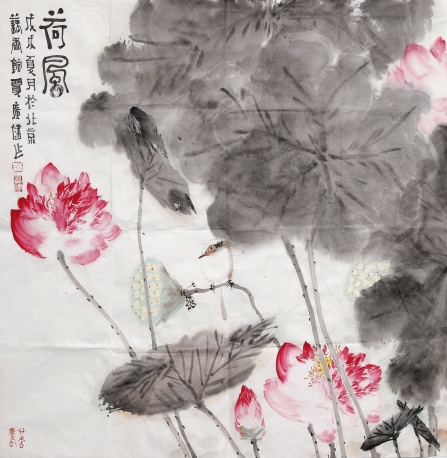 荷風
戊戌夏月於北京
藕香館賈廣健作